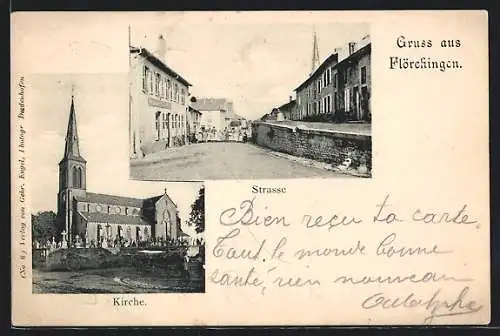 Gruss aus
Flörchingen.
Strasse
Kirche.
(No 8) Verlag von Gebr. Engel, Photogr. Diedenhofen
Bien reçu ta carte,
Tout le monde bonne
santé, rien nouveau